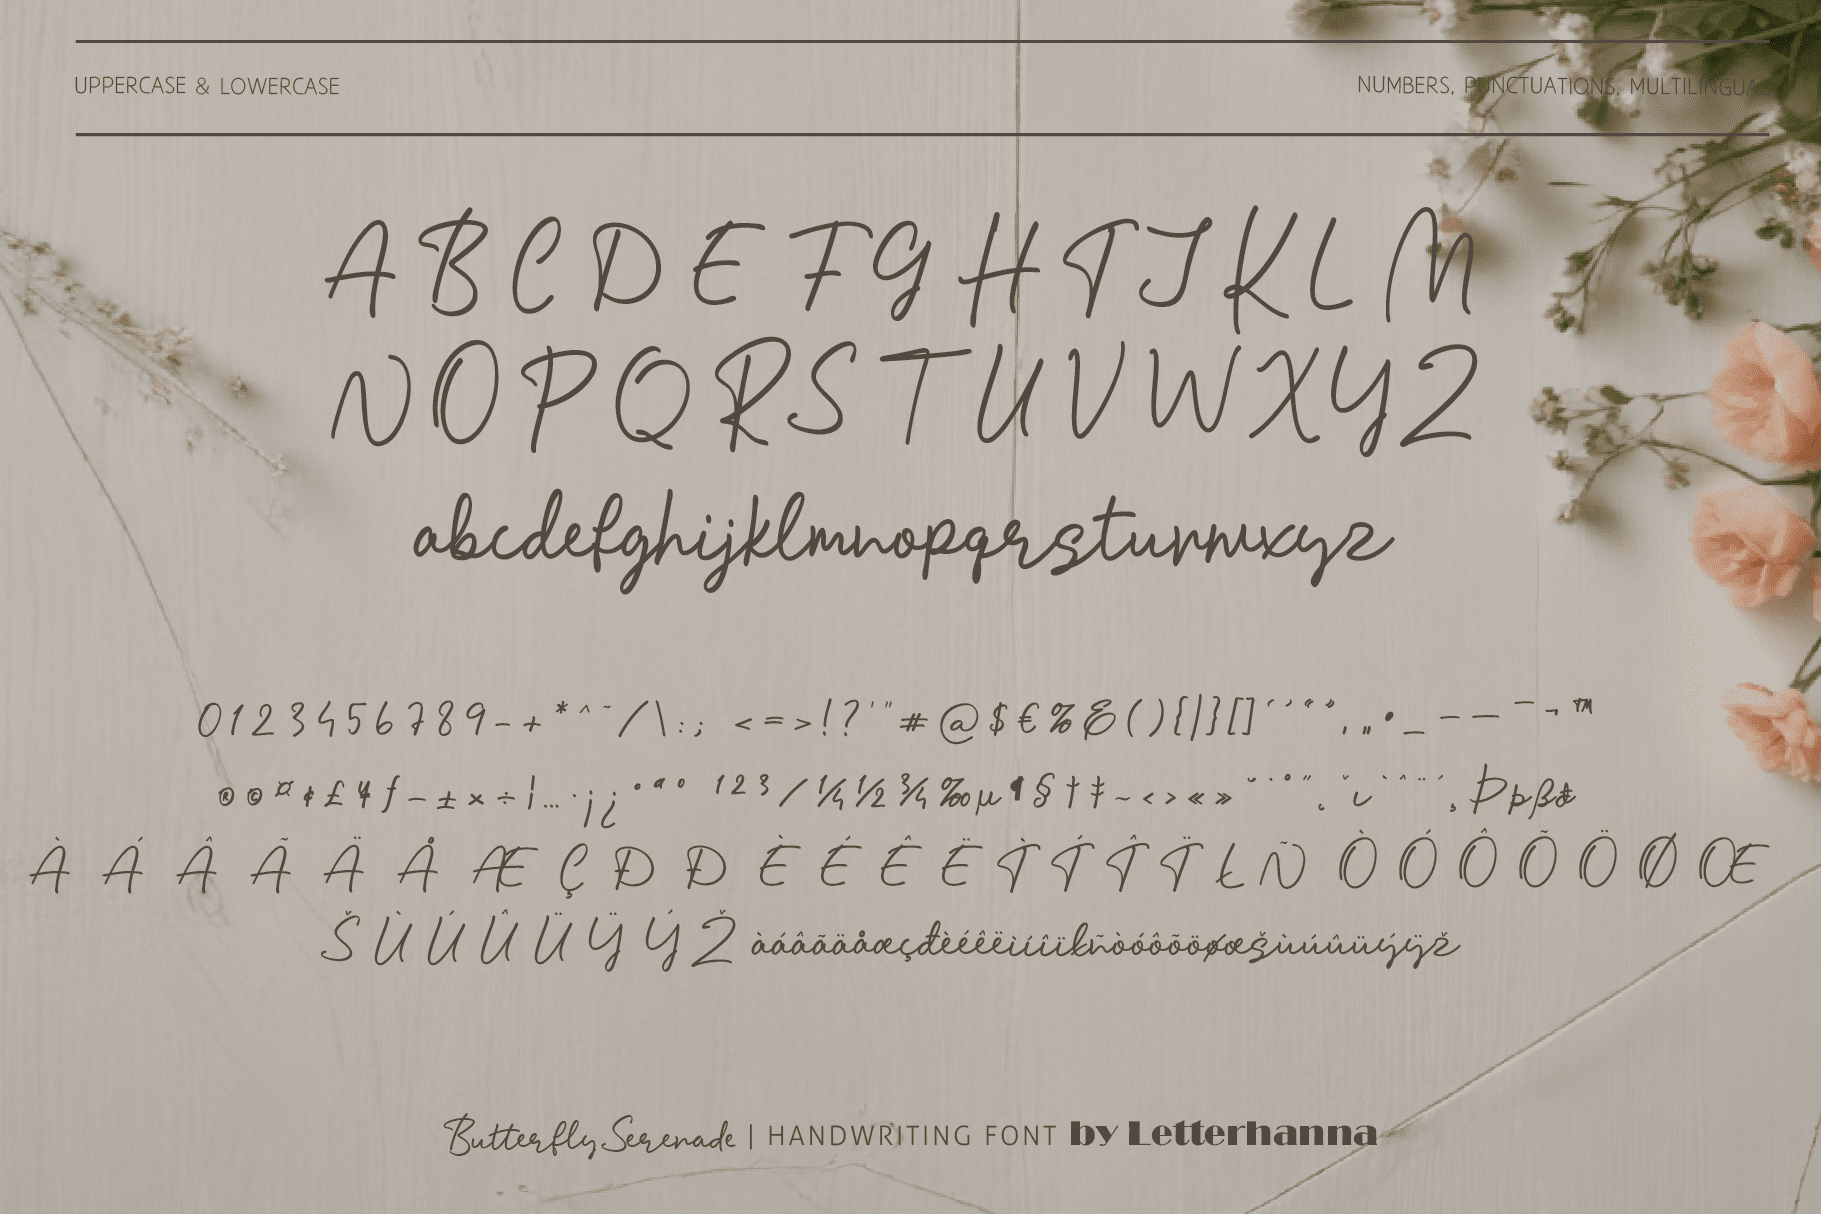 UPPERCASE & LOWERCASE
NUMBERS, PUNCTUATIONS, MULTILINGUAL
A B C D E F G H I J K L M
N O P Q R S T U V W X Y Z
abcdefghijklmnopqrstuvwxyz
0 1 2 3 4 5 6 7 8 9 - + * ^ ~ / \ : ; < = > ! ? ' " # @ $ € % & ( ) { | } [ ] ‘ ’ “ ” ‚ „ • _ – — ¯ ¬ ™
® © ¤ ¢ £ ¥ ƒ − ± × ÷ ¦ … · ¡ ¿ ° ª º ¹ ² ³ ⁄ ¼ ½ ¾ ‰ µ ¶ § † ‡ ~ ‹ › « » ˘ ˙ ˚ ˝ ˛ ˇ ` ˆ ¨ ´ ¸ Þ þ ß
À Á Â Ã Ä Å Æ Ç Ð Đ È É Ê Ë Ì Í Î Ï Ł Ñ Ò Ó Ô Õ Ö Ø Œ
Š Ù Ú Û Ü Ÿ Ý Ž àáâãäåæçđèéêëìíîïłñòóôõöøœšùúûüýÿž
Butterfly Serenade | HANDWRITING FONT by Letterhanna